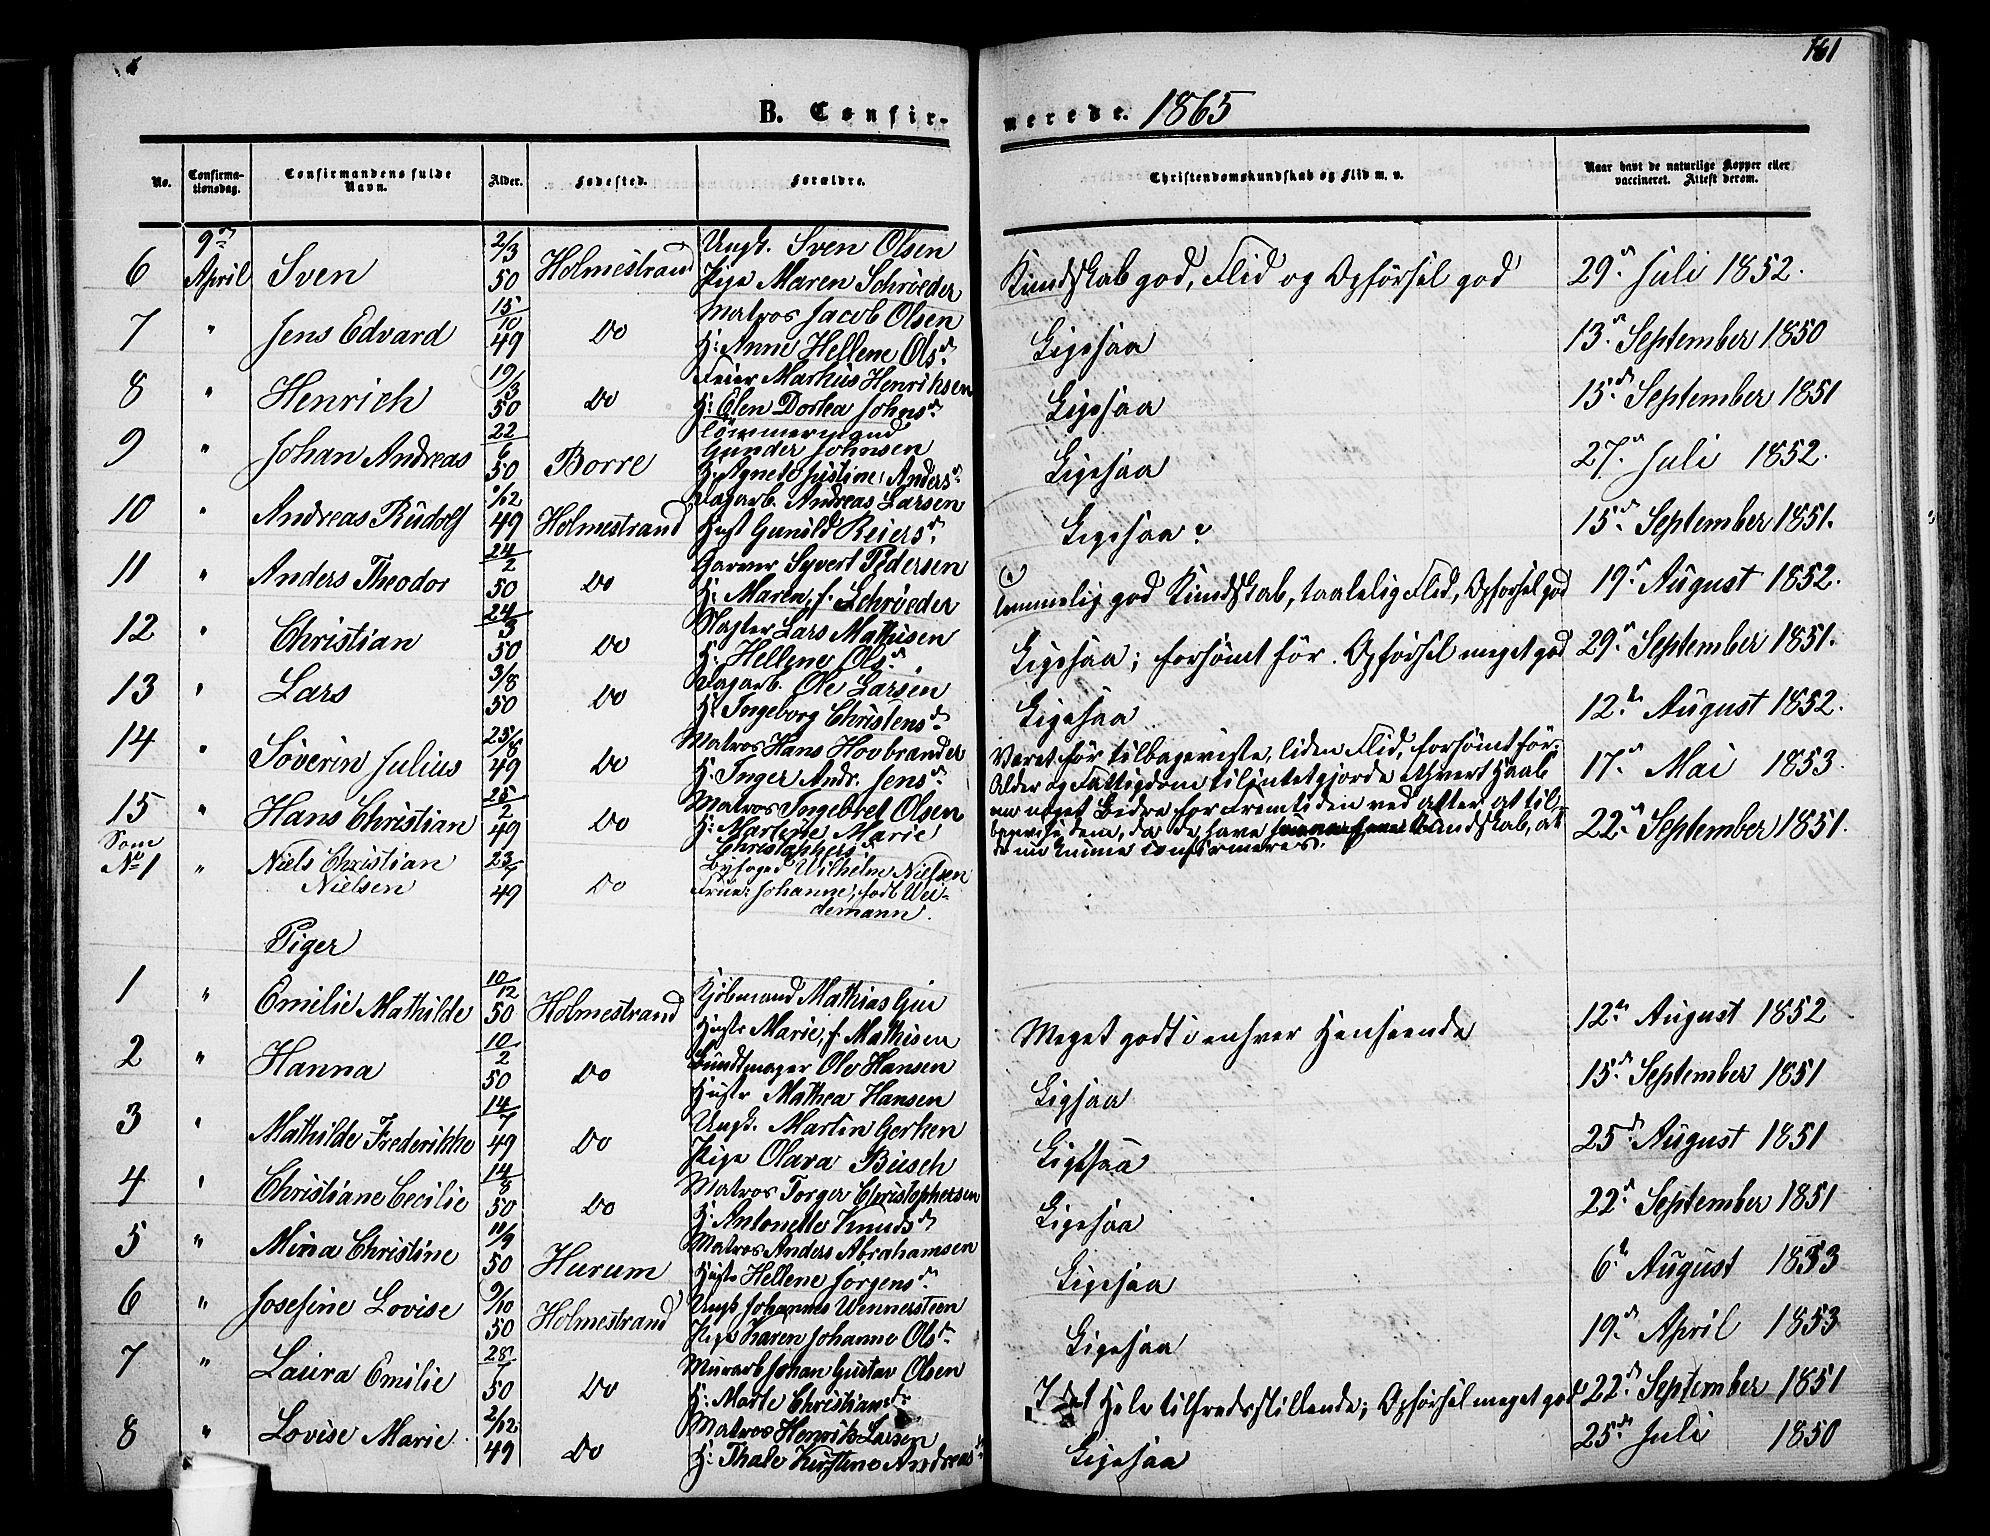 161
B. Confirmerede. 1865
No.
Confirmationsdag.
Confirmandens fulde Navn.
Alder.
Fødested.
Forældre.
Christendomskundskab og Flid m. v.
Naar havt de naturlige Kopper eller vaccineret. Attest derom.
6 9de April Sven 2/3 50 Holmestrand Ungk. Sven Olsen
Pige Maren Schrøeder
Kundskab god, Flid og Opførsel god 29de Juli 1852.
7 " Jens Edvard 15/10 49 Do Matros Jacob Olsen
H: Anne Hellene Olsd.
Ligesaa 13. September 1850
8 " Henrich 19/3 50 Do Feier Markus Henriksen
H: Elen Dortea Johnsd.
Ligesaa 15de September 1851
9 " Johan Andreas 22/6 50 Borre Tömmermand
Gunder Johnsen
H. Agnete Justine Andersd.
Ligesaa 27de Juli 1852.
10 " Andreas Rudolf /12 49 Holmestrand Dagarb. Andreas Larsen
Hust Gunild Reiersd.
Ligesaa 15de September 1851.
11 " Anders Theodor 24/2 50 Do Garver Syvert Pedersen
H: Maren, f. Schrøeder
temmelig god Kundskab, taalelig Flid, Opførsel god 19. August 1852.
12 " Christian 24/3 50 Do Slagter Lars Mathisen
H: Hellene Olsd.
Ligesaa; forsömt før. Opførsel meget god 29de September 1851.
13 " Lars 3/8 50 Do Dagarb. Ole Larsen
H: Ingeborg Christensd.
Ligesaa 12te August 1852.
14 " Söverin Julius 25/8 49 Do Matros Hans Hovbrander
H. Inger Andr. Jensd.
Været før tilbageviste, liden Flid, forsömt før;
17de Mai 1853.
Alder og Fattigdom tilintetgjorde ethvert Haab
15 " Hans Christian 25/2 49 Do Matros Ingebret Olsen
H: Martine Marie
Christophersd.
om noget Bedre for Fremtiden ved atter at til-
bagevise dem, da de have Kundskab, at
de nu kunne confirmeres.
22de September 1851.
Som
No 1 " Niels Christian
Nielsen 23/7 49 Do Byfoged Wilhelm Nielsen
Frue: Johanne, født Wei-
demann.
Piger
1 " Emilie Mathilde 10/12 50 Holmestrand Kjöbmand Mathias Giu
Hustr Marie, f. Mathisen
Meget godt i enhver Henseende 12te August 1852
2 " Hanna 10/2 50 Do Bundtmager Ole Hansen
Hustr Mathea Hansen
Ligsaa 15de September 1851
3 " Mathilde Frederikke 14/7 49 Do Ungk. Martin Gerken
Pige Olava Busch
Ligesaa 25de August 1851
4 " Christiane Cecilie 14/8 50 Do Matros Torger Christophersen
H: Antonette Knudsd.
Ligesaa 22de September 1851
5 " Mina Christine 18/9 50 Hurum Matros Anders Abrahamsen
Hustr Hellene Jörgensd.
Ligesaa 6te August 1853
6 " Josefine Lovise 9/10 50 Holmestrand Ungk Johannes Wennersteen
Pige Karen Johanne Olsd.
Ligesaa 19de April 1853
7 " Laura Emilie 28/7 50 Do Murarb Johan Gustav Olsen
H: Marte Christiansd.
I det Hele tilfredsstillende; Opførsel meget god 22de September 1851
8 " Lovise Marie 2/12 49 Do Matros Henrik Larsen
H: Thale Kirstine Andreasd.
Ligesaa 25de Juli 1850